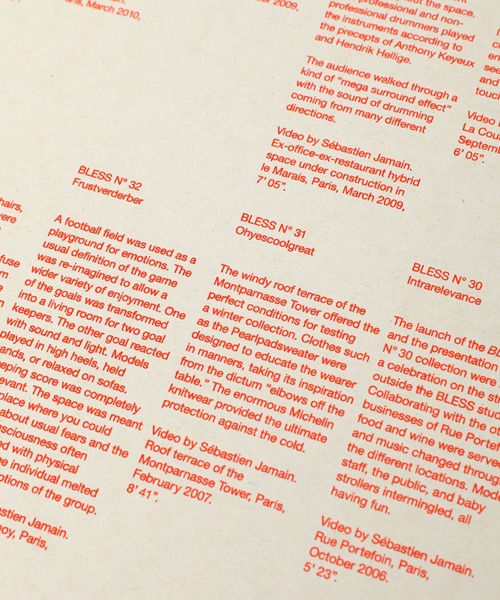 is, March 2010,
2009,
out the space.
professional and non-
professional drummers played
the instruments according to
the precepts of Anthony Keyeux
and Hendrik Hellige.
The audience walked through a
kind of "mega surround effect"
with the sound of drumming
coming from many different
directions.
Video by Sébastien Jamain.
Ex-office-ex-restaurant hybrid
space under construction in
le Marais, Paris, March 2009,
7' 05".
and
touch
Video
La Cou
Septem
6' 05".
hairs,
were
fuse
m
n
BLESS N° 32
Frustverderber
A football field was used as a
playground for emotions. The
usual definition of the game
was re-imagined to allow a
wider variety of enjoyment. One
of the goals was transformed
into a living room for two goal
keepers. The other goal reacted
with sound and light. Models
played in high heels, held
ands, or relaxed on sofas.
eeping score was completely
evant. The space was meant
place where you could
about usual fears and the
nsciousness often
ed with physical
e individual melted
ptions of the group.
astien Jamain.
oy, Paris,
BLESS N° 31
Ohyescoolgreat
The windy roof terrace of the
Montparnasse Tower offered the
perfect conditions for testing
a winter collection. Clothes such
as the Pearlpadsweater were
designed to educate the wearer
in manners, taking its inspiration
from the dictum "elbows off the
table." The enormous Michelin
knitwear provided the ultimate
protection against the cold.
Video by Sébastien Jamain.
Roof terrace of the
Montparnasse Tower, Paris,
February 2007.
8' 41".
BLESS N° 30
Intrarelevance
The launch of the
and the presentation
N° 30 collection were
a celebration on the st
outside the BLESS stu
Collaborating with the ot
businesses of Rue Portef
food and wine were serve
and music changed throug
the different locations. Mode
staff, the public, and baby
strollers intermingled, all
having fun.
Video by Sébastien Jamain.
Rue Portefoin, Paris,
October 2006.
5' 23".